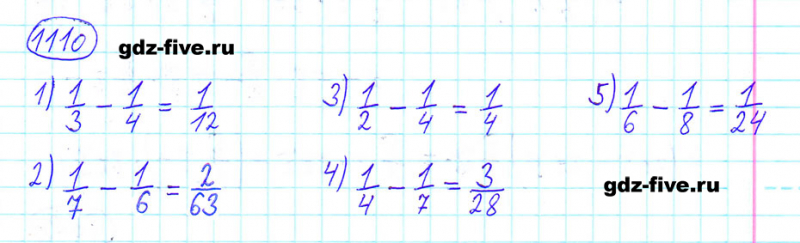 1110 gdz-five.ru
1) 1/3 - 1/4 = 1/12
3) 1/2 - 1/4 = 1/4
5) 1/6 - 1/8 = 1/24
2) 1/7 - 1/6 = 2/63
4) 1/4 - 1/7 = 3/28
gdz-five.ru